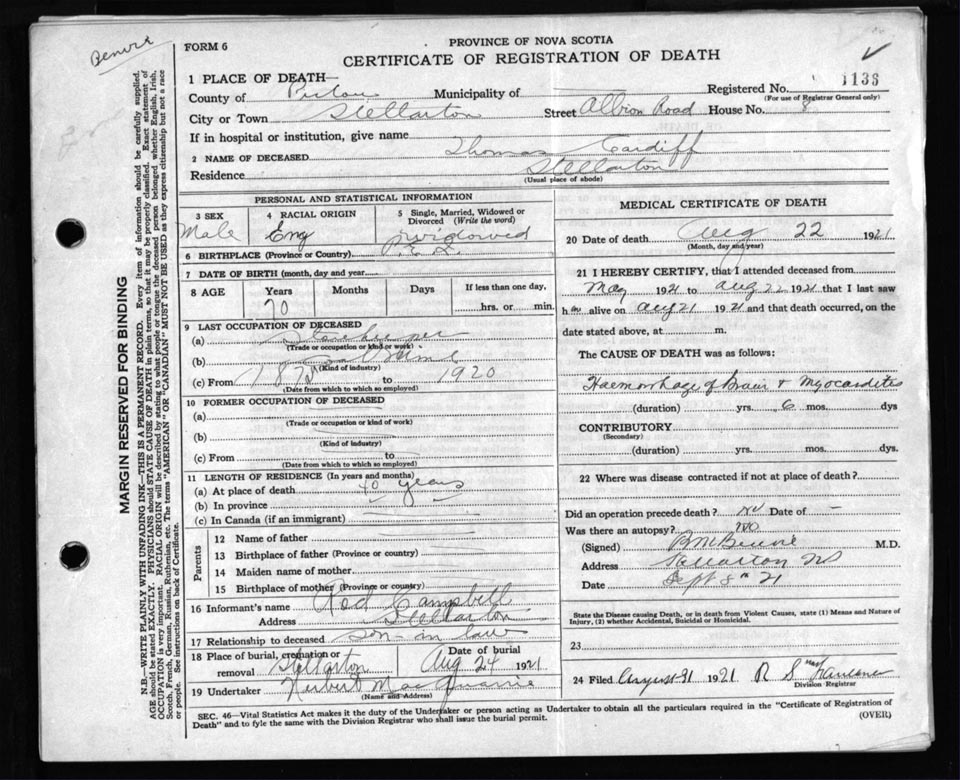 PROVINCE OF NOVA SCOTIA
FORM 6
CERTIFICATE OF REGISTRATION OF DEATH
1 PLACE OF DEATH—
Registered No. 1133
(For use of Registrar General only)
County of Pictou Municipality of
City or Town Stellarton Street Albion Road House No. 8
If in hospital or institution, give name
2 NAME OF DECEASED Thomas Cardiff
Residence Stellarton
(Usual place of abode)
PERSONAL AND STATISTICAL INFORMATION
3 SEX Male
4 RACIAL ORIGIN Eng
5 Single, Married, Widowed or Divorced (Write the word) widowed
6 BIRTHPLACE (Province or Country) P.E.I.
7 DATE OF BIRTH (month, day and year)
8 AGE Years 70 Months Days If less than one day, hrs. or min.
9 LAST OCCUPATION OF DECEASED
(a)
(Trade or occupation or kind of work)
(b)
(Kind of industry)
(c) From to 1920
(Date from which to which so employed)
10 FORMER OCCUPATION OF DECEASED
(a)
(Trade or occupation or kind of work)
(b)
(Kind of industry)
(c) From to
(Date from which to which so employed)
11 LENGTH OF RESIDENCE (In years and months)
(a) At place of death 40 years
(b) In province
(c) In Canada (if an immigrant)
Parents
12 Name of father
13 Birthplace of father (Province or country)
14 Maiden name of mother
15 Birthplace of mother (Province or country)
16 Informant's name Rod Campbell
Address Stellarton
17 Relationship to deceased son-in law
18 Place of burial, cremation or removal Stellarton Date of burial Aug 24 1921
19 Undertaker Herbert MacQuarrie
(Name and Address)
MEDICAL CERTIFICATE OF DEATH
20 Date of death Aug 22 1921
(Month, day and year)
21 I HEREBY CERTIFY, that I attended deceased from
May 1921 to Aug 22 1921 that I last saw
h alive on aug 21 1921 and that death occurred, on the
date stated above, at m.
The CAUSE OF DEATH was as follows:
Haemorrhage of Brain + Myocarditis
(duration) yrs. 6 mos. dys
CONTRIBUTORY
(Secondary)
(duration) yrs. mos. dys.
22 Where was disease contracted if not at place of death?
Did an operation precede death? no Date of –
Was there an autopsy? no
(Signed) M.D.
Address Stellarton NS
Date Sept 8th 21
State the Disease causing Death, or in death from Violent Causes, state (1) Means and Nature of
Injury, (2) whether Accidental, Suicidal or Homicidal.
23
24 Filed August 31 1921 R S
Division Registrar
SEC. 46—Vital Statistics Act makes it the duty of the Undertaker or person acting as Undertaker to obtain all the particulars required in the "Certificate of Registration of
Death" and to fyle the same with the Division Registrar who shall issue the burial permit.
(OVER)
MARGIN RESERVED FOR BINDING
N.B.—WRITE PLAINLY WITH UNFADING INK—THIS IS A PERMANENT RECORD. Every item of information should be carefully supplied.
AGE should be stated EXACTLY. PHYSICIANS should STATE CAUSE OF DEATH in plain terms, so that it may be properly classified. Exact statement of
OCCUPATION is very important. RACIAL ORIGIN will be described by stating to what people or tongue the deceased person belonged whether English, Irish,
Scotch, French, German, Russian, Ruthenian, etc. The terms "AMERICAN" OR "CANADIAN" MUST NOT BE USED as they express citizenship but not a race
or people. See instructions on back of Certificate.